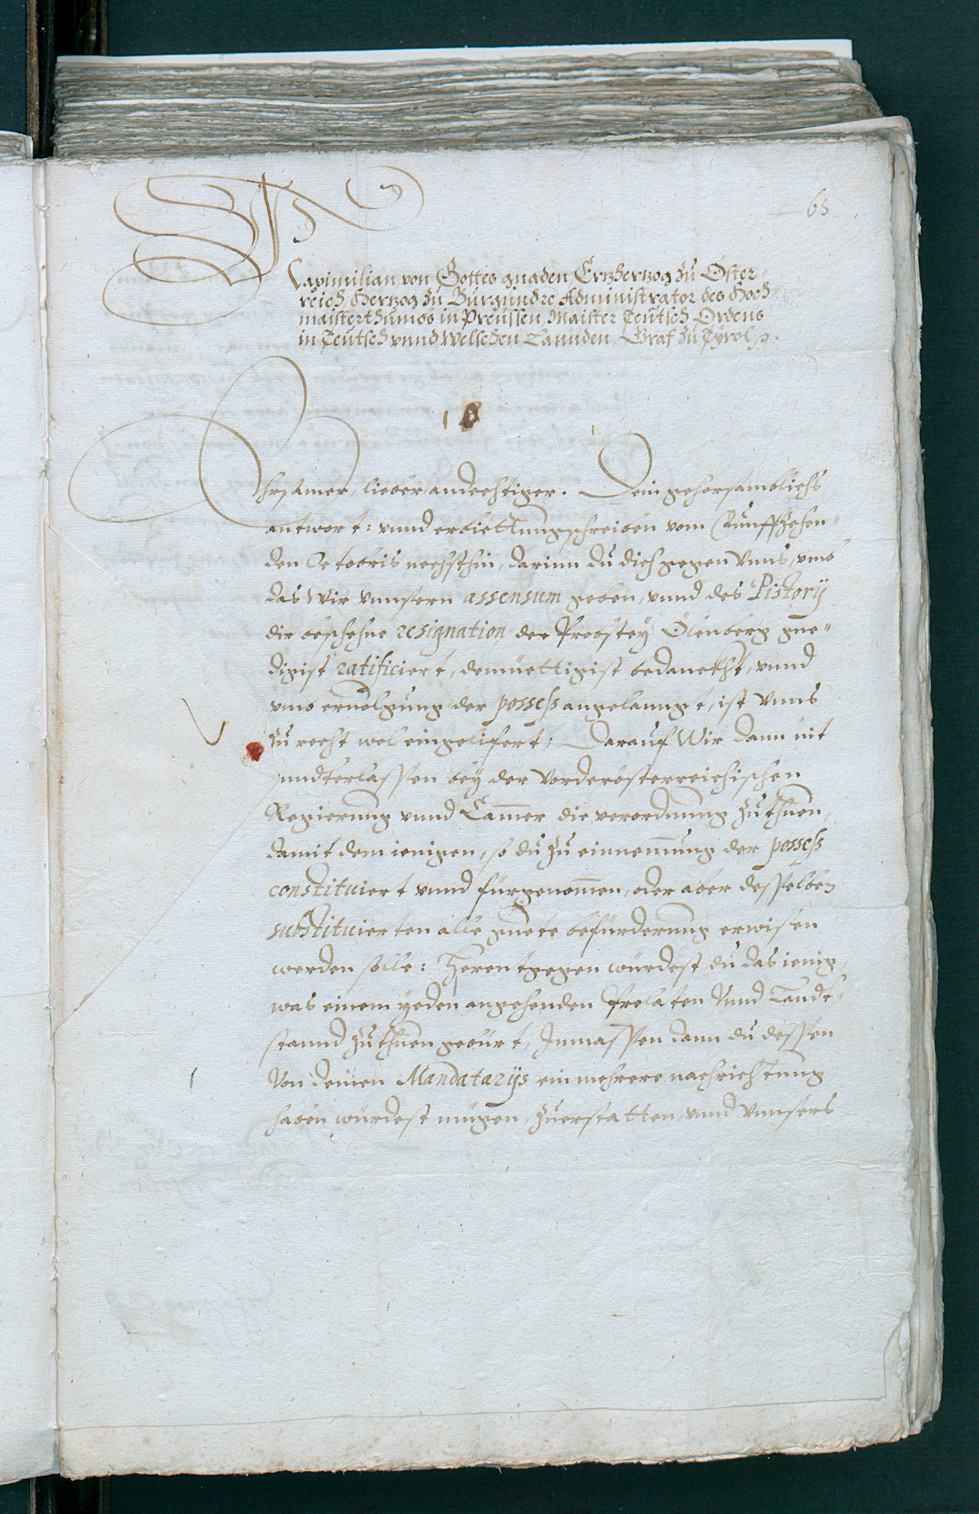 65
Maximilian von Gottes gnaden, Ertzhertzog zu Öster=
reich, Hertzog zu Burgundt Administrator des Hoch=
maisterthumbs in Preussen, Maister Teutsch Ordens
in Teutsch vnnd Welschen Lannden Graf zu Tyrol
Ehrsamer, lieber andechtiger. Dein gehorsamblichs
antwort: vnnd erbiettungschreiben vom Funffzehen=
den Octobris nechsthin, darinn du dich gegen Vnns, vmb
das Wir Vnnsern assensum geben, vnnd des Pistorij
dir beschehne resignation der Probstey Ölenberg gne=
digist ratificiert, demüettigist bedanckhst, vnnd
vmb ervolgung der possess angelanngt, ist Vnns
zu recht wol eingelifert: Darauf Wir dann nit
vnndterlassen bey der Vorderösterreichischen
Regierung vnnd Camer die verordnung zuthuen,
damit dem ienigen, so du zu einnemung der possess
constituiert vnnd fürgenomen, oder aber desselben
substituierten alle guete befürderung erwisen
werden solle: Herentgegen würdest du das ienig,
was einem yeden angehenden Prelaten Vnnd Landt=
stannd zuthuen gebürt, Inmassen dann du dessen
Von deinen Mandatarijs ein mehrere nachrichtung
haben würdest mügen, zuerstatten, vnnd Vnnsers